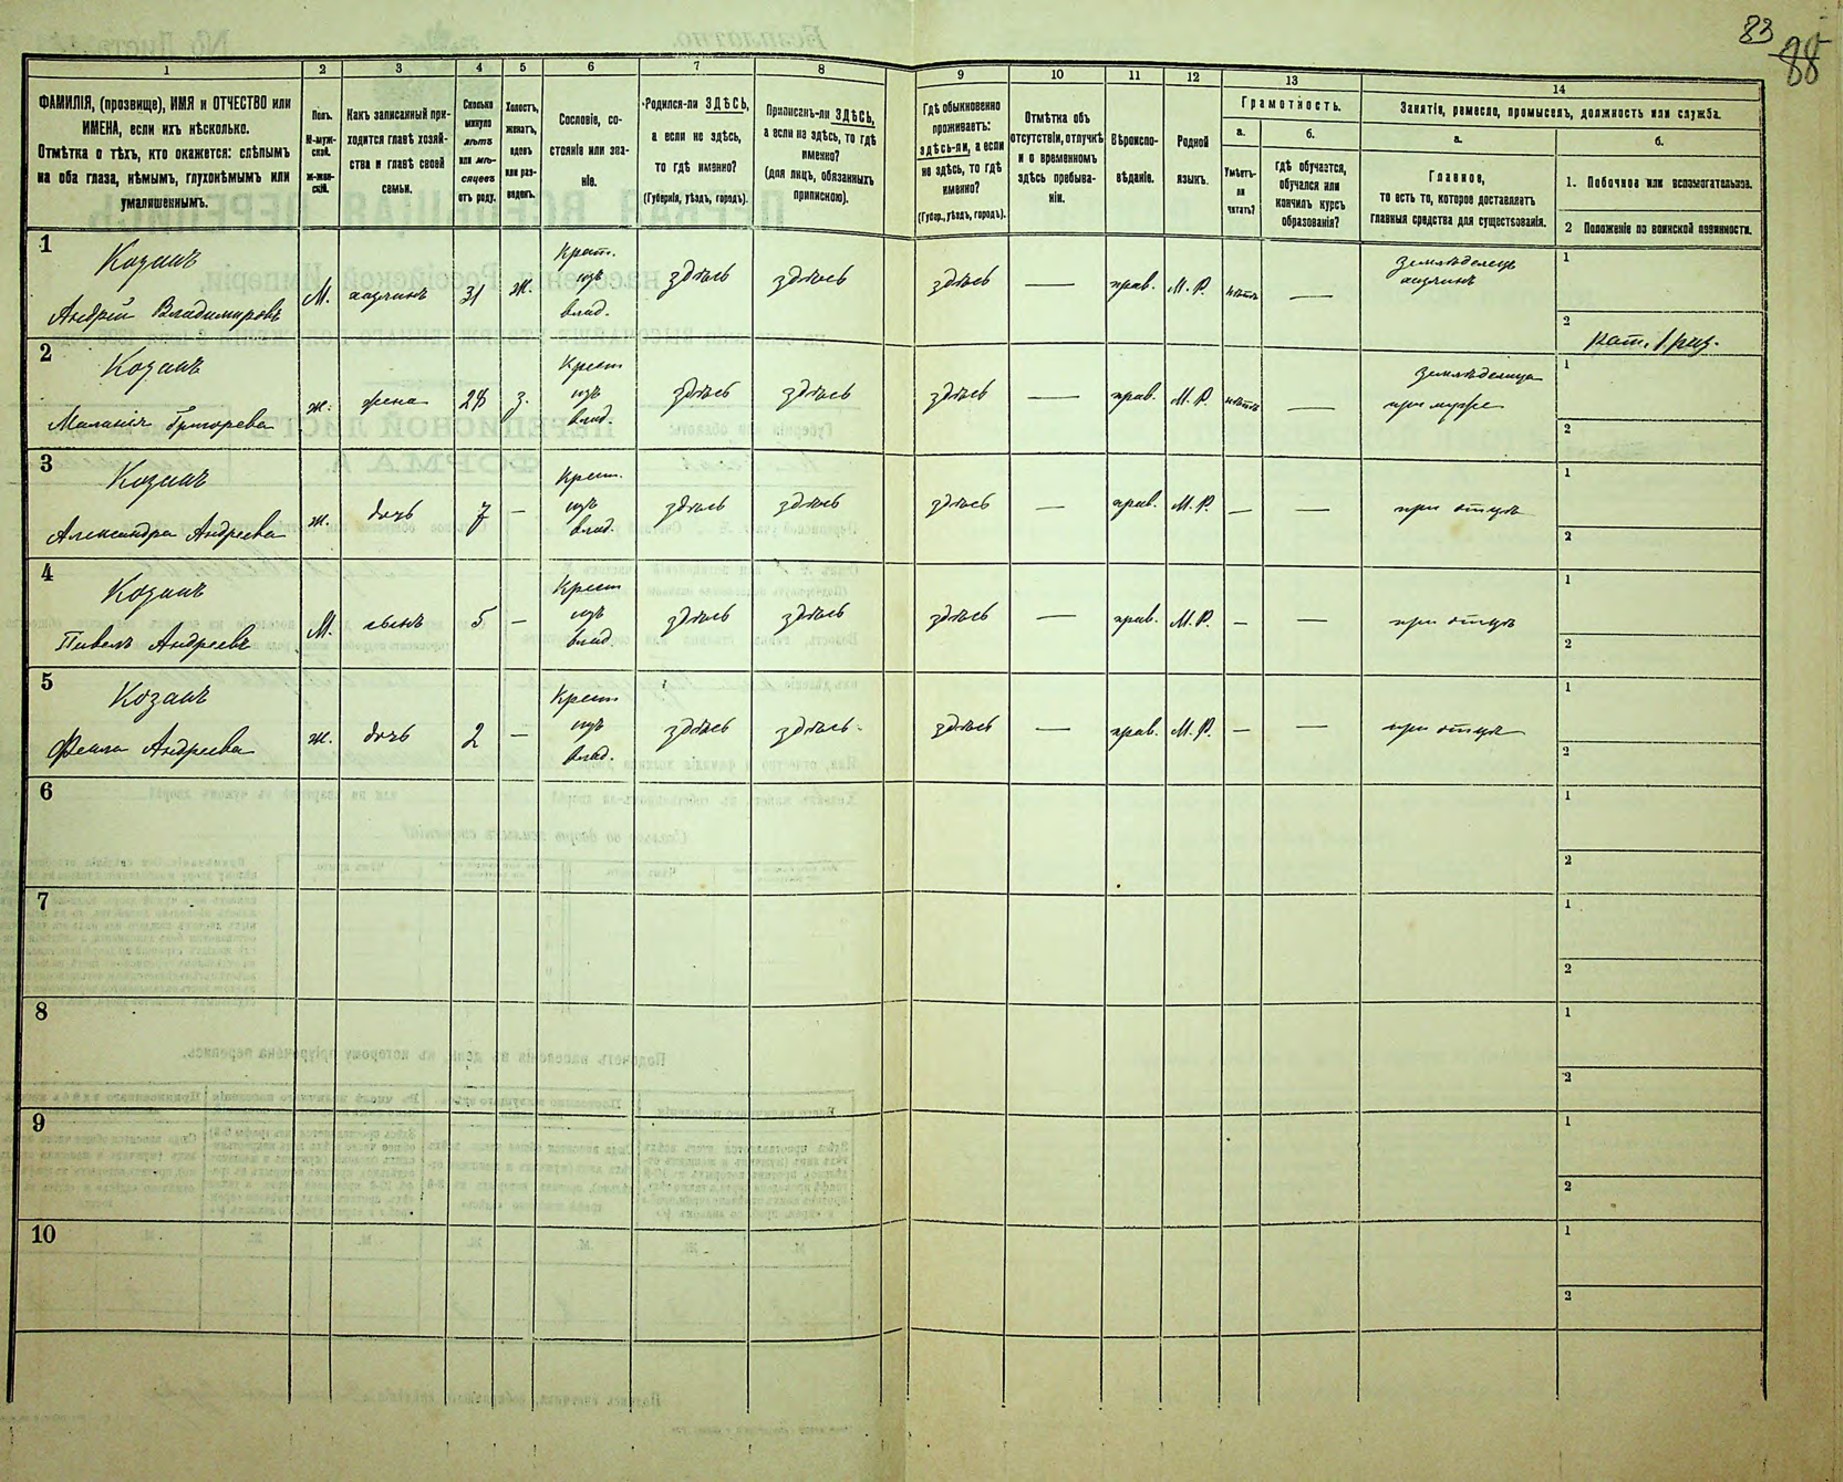 83
88
1
2
3
4
5
6
7
8
9
10
11
12
13
14
ФАМИЛІЯ, (прозвище), ИМЯ и ОТЧЕСТВО или
ИМЕНА, если ихъ нѣсколько.
Отмѣтка о тѣхъ, кто окажется: слѣпымъ
на оба глаза, нѣмымъ, глухонѣмымъ или
умалишеннымъ.
Полъ.
М-муж-
ской.
Ж-жен-
скій.
Какъ записанный при-
ходится главѣ хозяй-
ства и главѣ своей
семьи.
Сколько
минуло
лѣтъ
или мѣ-
сяцевъ
отъ роду.
Холостъ,
женатъ,
вдовъ
или раз-
веденъ.
Сословіе, со-
стояніе или зва-
ніе.
Родился-ли ЗДѢСЬ,
а если не здѣсь,
то гдѣ именно?
(Губернія, уѣздъ, городъ).
Приписанъ-ли ЗДѢСЬ,
а если не здѣсь, то гдѣ
именно?
(для лицъ, обязанныхъ
припискою).
Гдѣ обыкновенно
проживаетъ:
здѣсь-ли, а если
не здѣсь, то гдѣ
именно?
(Губер., уѣздъ, городъ).
Отмѣтка объ
отсутствіи, отлучкѣ
и о временномъ
здѣсь пребыва-
ніи.
Вѣроиспо-
вѣданіе.
Родной
языкъ.
Грамотность.
а.
б.
Умѣетъ-
ли
читать?
Гдѣ обучается,
обучался или
кончилъ курсъ
образованія?
Занятія, ремесло, промыселъ, должность или служба.
а.
б.
Главное,
то есть то, которое доставляетъ
главныя средства для существованія.
1. Побочное или вспомогательное.
2 Положеніе по воинской повинности.
1
Козакъ
Андрей Владимировъ
М. хозяинъ 31 ж.
Крест.
изъ
влад.
здѣсь здѣсь здѣсь — прав. М. Р. нѣтъ —
земледѣлецъ
хозяинъ
1
2
рат. 1 раз.
2
Козакъ
Маланія Григорева
ж. жена 28 з.
Крест
изъ
влад.
здѣсь здѣсь здѣсь — прав. М. Р. нѣтъ —
земледѣлица
при мужѣ
1
2
3
Козакъ
Александра Андреева
ж. дочь 7 —
Крест.
изъ
влад.
здѣсь здѣсь здѣсь — прав. М. Р. — — при отцѣ
1
2
4
Козакъ
Павелъ Андреевъ
М. сынъ 5 —
Крест
изъ
влад.
здѣсь здѣсь здѣсь — прав. М. Р. — — при отцѣ
1
2
5
Козакъ
Андреева
ж. дочь 2 —
Крест
изъ
влад.
здѣсь здѣсь здѣсь — прав. М. Р. — — при отцѣ
1
2
6
1
2
7
1
2
8
1
2
9
1
2
10
1
2